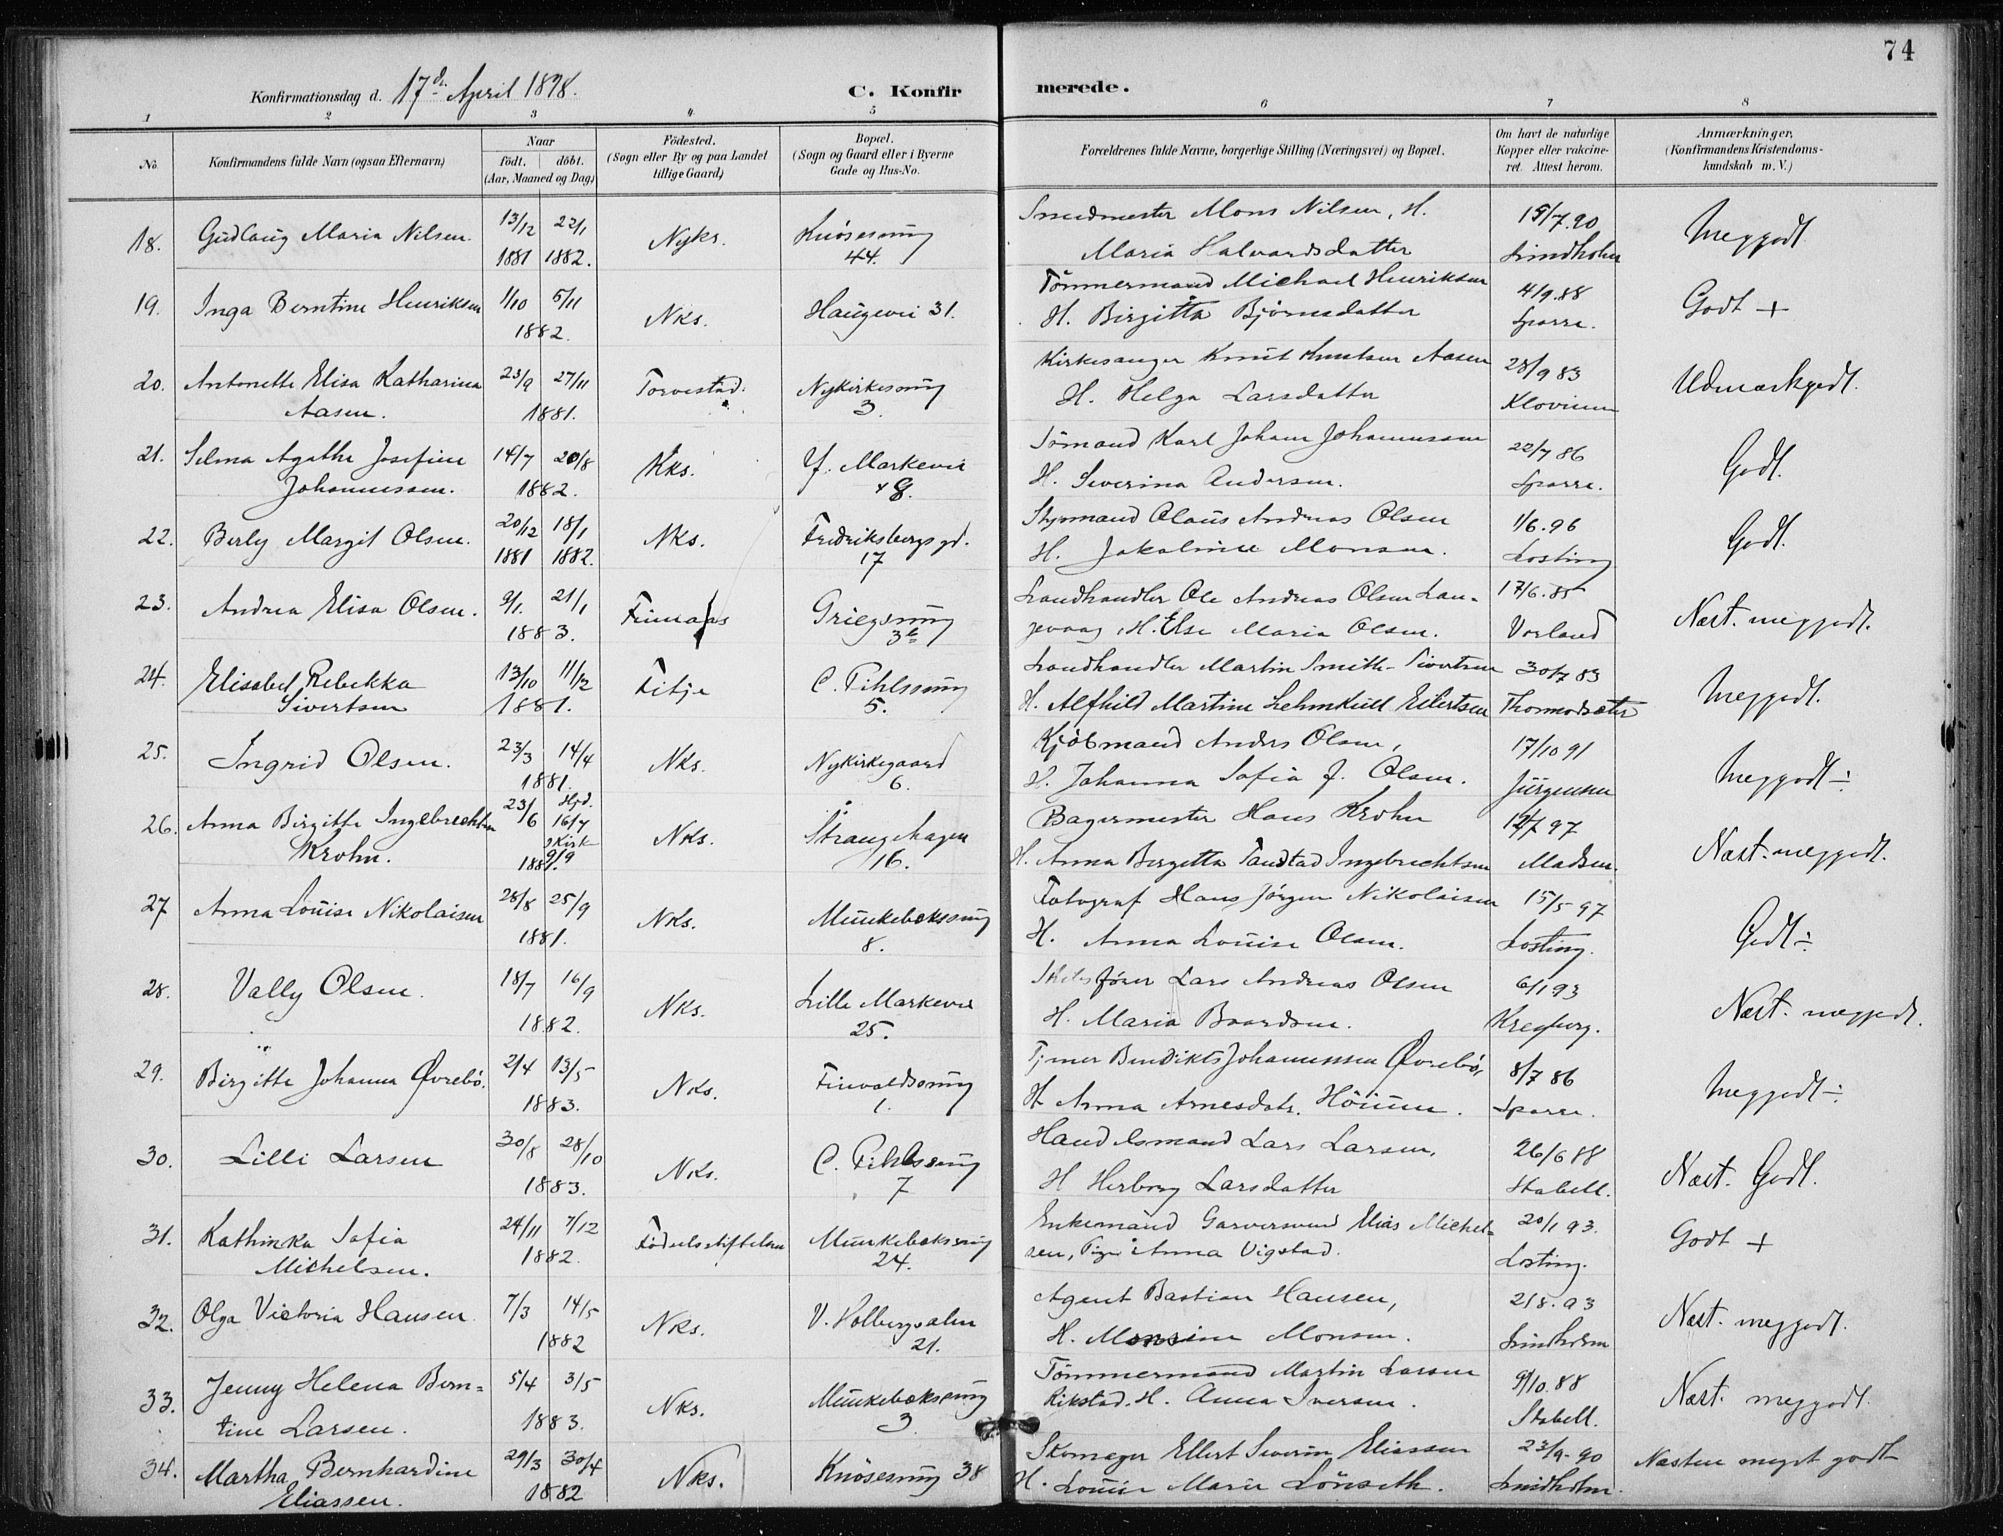 74
Konfirmationsdag d. 17de April 1898. C. Konfirmerede.
1 2 3 4 5 6 7 8
No. Konfirmandens fulde Navn (ogsaa Efternavn) Naar födt. döbt. (Aar, Maaned og Dag) Födested. (Sogn eller By og paa Landet tillige Gaard) Bopæl. (Sogn og Gaard eller i Byerne Gade og Hus-No. Forældrenes fulde Navne, borgerlige Stilling (Næringsvei) og Bopæl. Om havt de naturlige Kopper eller vakcineret. Attest herom. Anmærkninger, (Konfirmandens Kristendomskundskab m. V.)
18. Gudlaug Maria Nilsen. 13/12 22/1 Nyks. Knösesmug Smedmester Mons Nilsen, H. 15/7.90 Meggodt
1881 1882. 44. Maria Halvardsdatter Lindholm
19. Inga Berntine Henriksen 1/10 5/11 Nks. Haugevei 31. Tömmermand Michael Henriksen 4/9.88 Godt +
1882. H. Birgitta Björnsdatter Sparre.
20. Antonette Elisa Katharina 23/9 27/11 Torvestad. Nykirkesmug Kirkesanger Knut Knutsen Aasen 28/9 83 Udmærkgodt.
Aasen. 1881. 3. H. Helga Larsdatter Klovium
21. Selma Agathe Josefine 14/7 20/8 Kks. Y. Markevei Sömand Karl Johan Johannessen 22/7 86 Godt.
Johannessen. 1882. 48. H. Severina Andersen. Sparre.
22. Berly Margit Olsen. 20/12 18/1 Nks. Fredriksbergsgd. Styrmand Olaus Andreas Olsen 1/6.96 Godt.
1881 1882. 17 H. Jakobine Monsen. Losting
23. Andrea Elisa Olsen. 9/1. 21/1 Finnaas Griegsmug Landhandler Ole Andreas Olsen Lan- 17/6.85 Næst. meggodt.
1883. 3b gevaag, H. Else Maria Olsen. Vorland
24. Elisabet Rebekka 13/10 11/12 Fitje C. Pihlssmug Landhandler Martin Smith-Sivertsen 30/7 83 Meggodt.
Sivertsen 1881. 5. H. Alfhild Martine Lehmkull Eilertsen Thormodsæter
25. Ingrid Olsen. 23/3 14/4 Nks. Nykirkegaard Kjöbmand Anders Olsen, 17/10 91 Meggodt ÷
1881. 6. H. Johanna Sofia J. Olsen. Jürgensen
26. Anna Birgitte Ingebrechtsen 23/6 Hjd. 16/7 Nks. Strangehagen Bagermester Hans Krohn 12/7 97 Næst. meggodt.
Krohn. 1881. Kirk 9/9 16. H. Anna Birgetta Tandstad Ingebrechtsen Madsen.
27 Anna Louise Nikolaisen 28/8 25/9 Nks. Munkebæksmug Fotograf Hans Jörgen Nikolaisen 15/5 97 Godt ÷
1881. 8. H. Anna Louise Olsen. Losting.
28. Vally Olsen. 18/7 16/9 Nks. Lille Markevei Skibsförer Lars Andreas Olsen 6/1 93 Næst. meggodt.
1882. 25. H. Maria Baardsen.
29. Birgitte Johanna Øvrebö. 2/4 13/5 Nks. Finvaldsmug Tjener Bendikts Johannessen Øvrebö, 8/7 86 Meggodt ÷
1883. 1. H. Anna Arnesdatr. Höium. Sparre.
30. Lilli Larsen 30/8 28/10 Nks. C. Pihlssmug Handelsmand Lars Larsen, 26/6 88 Næst. Godt.
1883. 7 H Herborg Larsdatter Stabell.
31. Kathinka Sofia 24/11 7/12 Födselsstiftelsen Munkebæksmug Enkemand Garversvend Elias Michel- 20/1 93. Godt +
Michelsen. 1882. 24. sen, Pige Anna Vigstad. Losting.
32. Olga Victoria Hansen 7/3 14/5 Nks. V. Holbergsalm Agent Bastian Hansen, 2/8.93 Næst. meggodt.
1882 21. H. Monsine Monsen. Lindholm
33. Jenny Helena Bern- 5/4 3/5 Nks. Munkebæksmug Tömmermand Martin Larsen 9/10.88 Næst. meggodt.
tine Larsen. 1883. 3. Rikstad. H. Anna Iversen. Stabell.
34. Martha Bernhardine 29/3 30/4 Nks. Knösesmug 38 Skomager Ellert Severin Eliassen 23/9-90 Næsten meget godt
Eliassen. 1882 H. Louise Marie Lönseth. Lindholm.